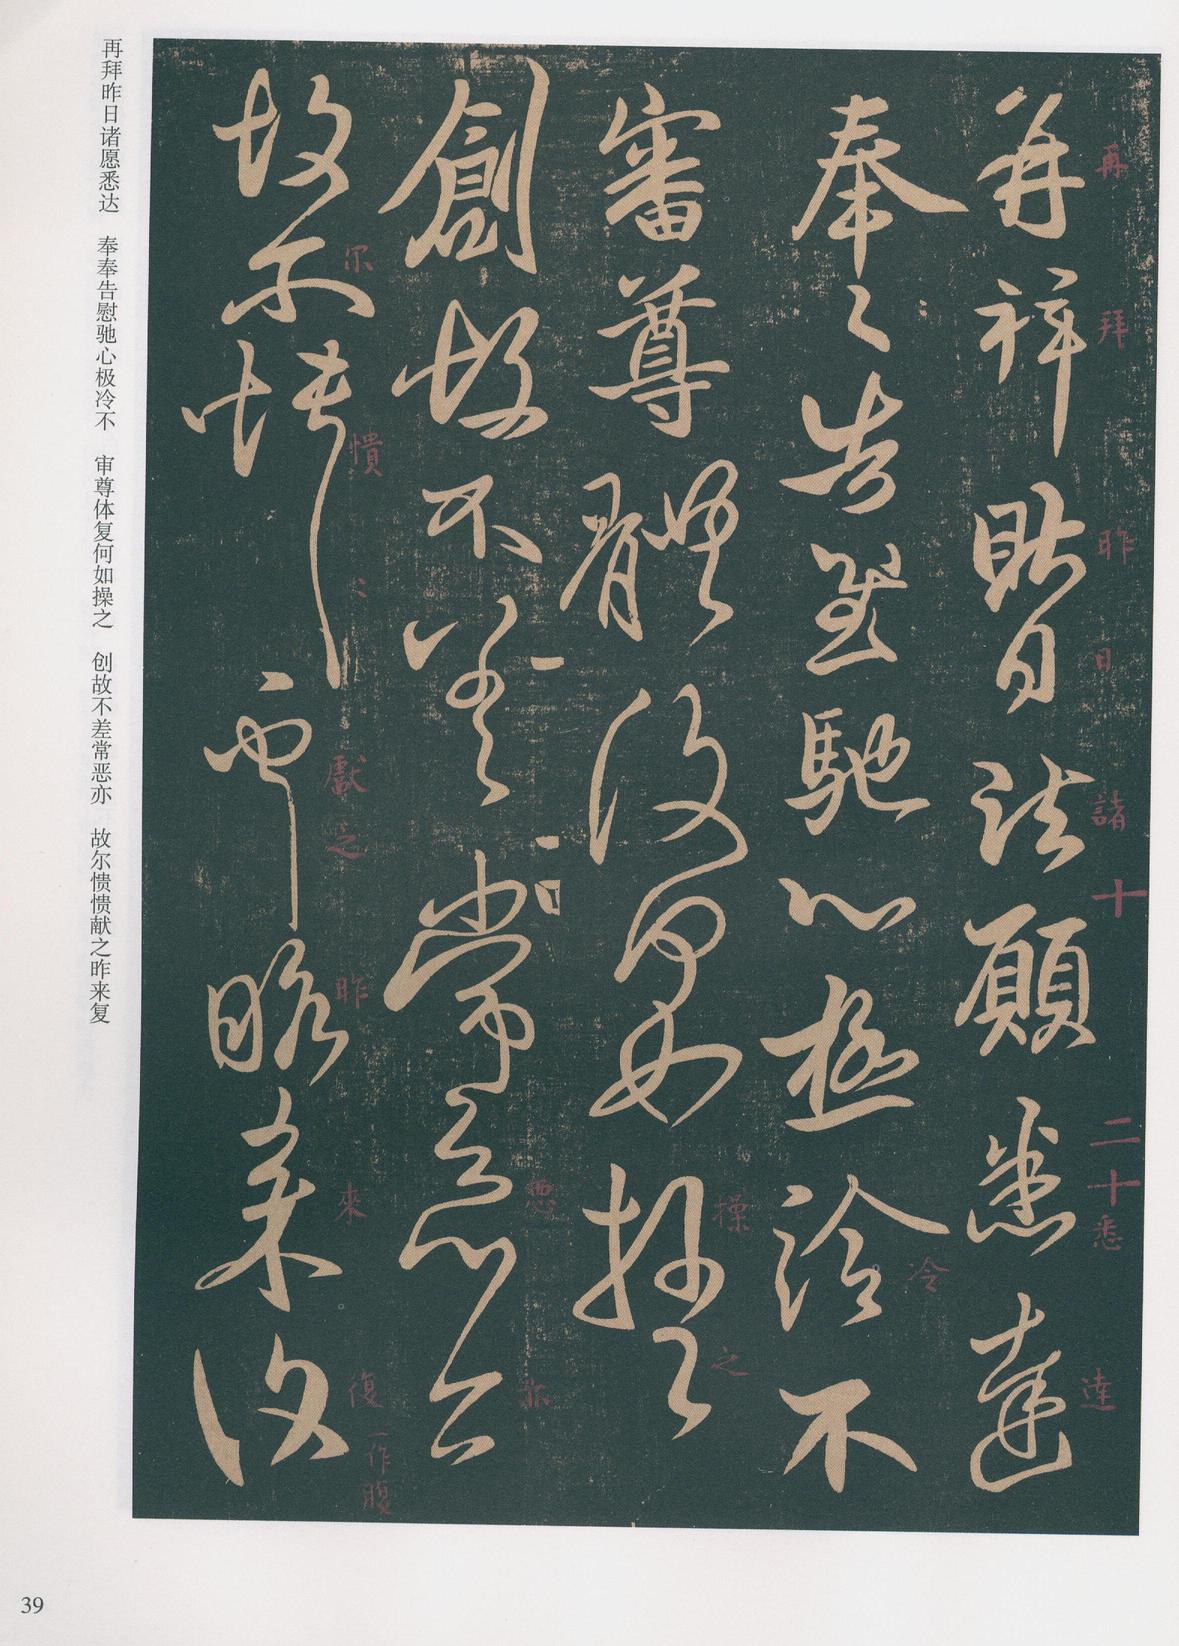 再拜昨日諸願悉達
奉奉告慰馳心極冷不
審尊體復何如操之
創故不差常惡亦
故尔憒憒獻之昨來復
再
拜
昨
日
諸
十
二十
悉
達
冷
操
之
惡
尔
憒
獻之
昨
來
復
一作腹
再拜昨日诸愿悉达 奉奉告慰驰心极冷不 审尊体复何如操之 创故不差常恶亦 故尔愦愦献之昨来复
39